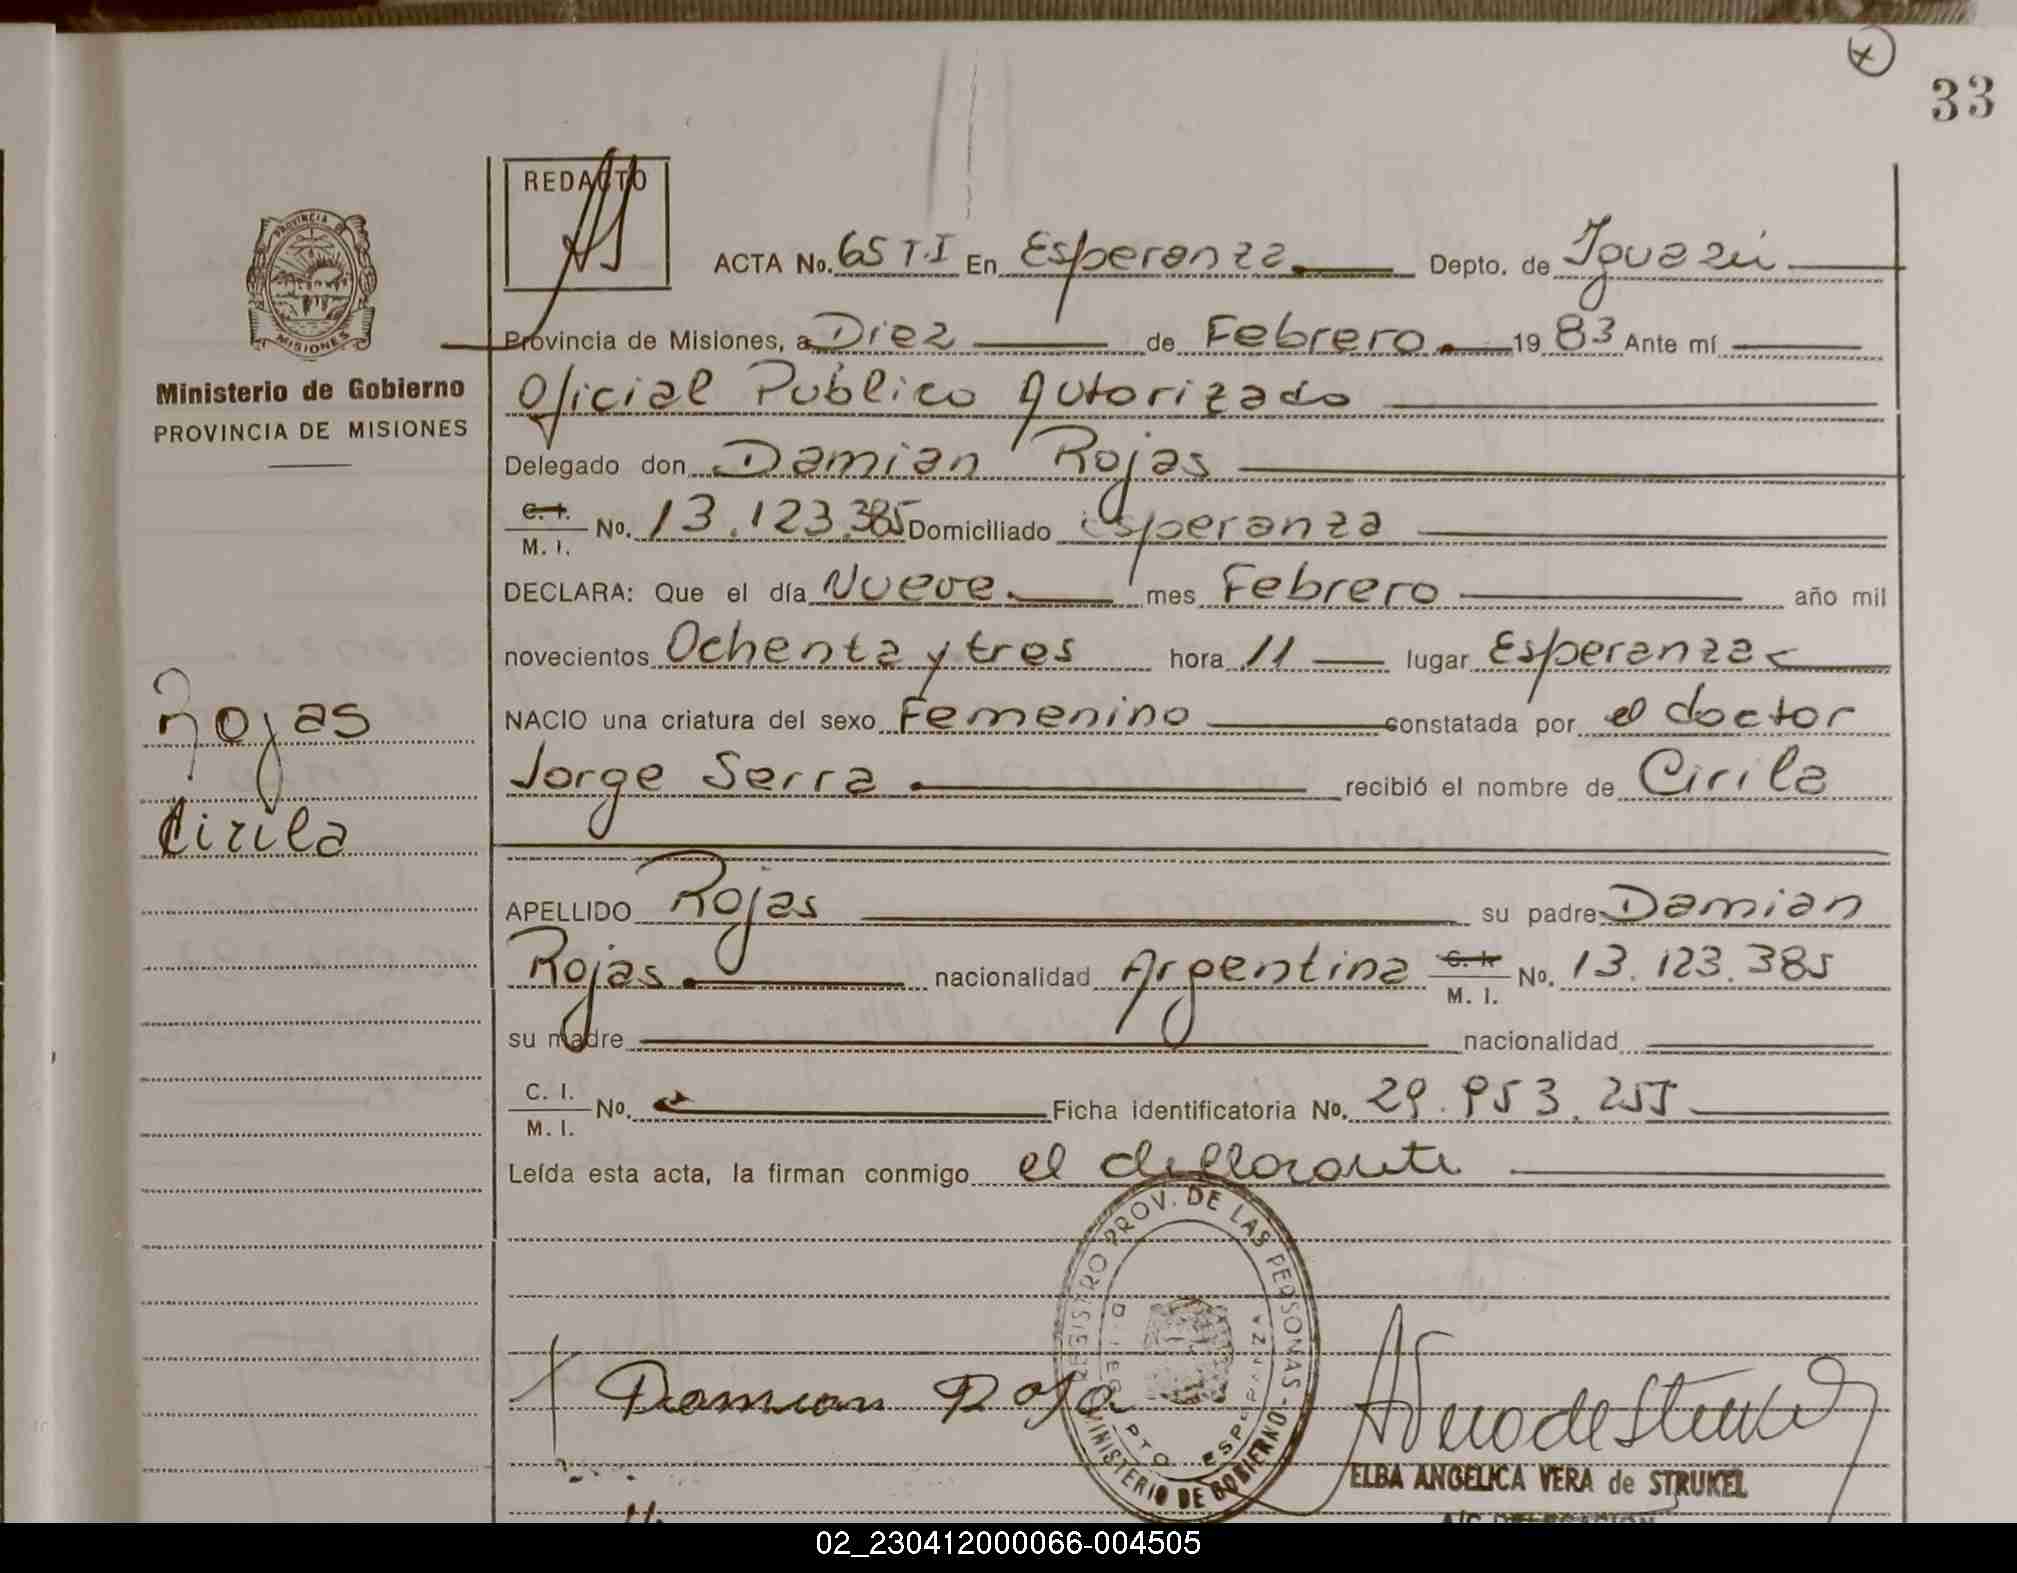 33
REDACTO
PROVINCIA
MISIONES
Ministerio de Gobierno
PROVINCIA DE MISIONES
ACTA No. 65 T.I En Esperanza Depto. de Iguazú
Provincia de Misiones, a Diez de Febrero 19 83 Ante mí
Oficial Público Autorizado
Delegado don Damian Rojas
C. I. M. I. No. 13.123.385 Domiciliado Esperanza
DECLARA: Que el día Nueve mes Febrero año mil
novecientos Ochenta y tres hora 11 lugar Esperanza
NACIO una criatura del sexo Femenino constatada por el doctor
Jorge Serra recibió el nombre de Cirila
Rojas
Cirila
APELLIDO Rojas su padre Damian
Rojas nacionalidad Argentina C. I. M. I. No. 13.123.385
su madre nacionalidad
C. I. M. I. No. Ficha identificatoria No. 29.953.255
Leída esta acta, la firman conmigo el
REGISTRO PROV. DE LAS PERSONAS - MINISTERIO DE GOBIERNO
ESPERANZA
Damian Roja
ELBA ANGELICA VERA de STRUKEL
A/C DELEGACION
02_230412000066-004505